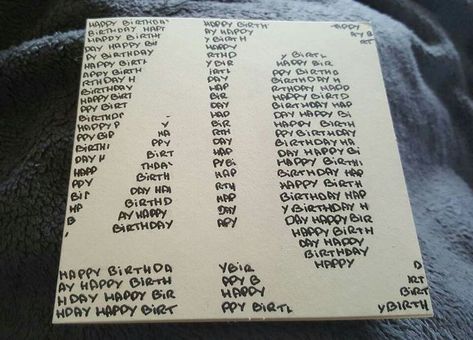 HAPPY BIRTHDA HAPPY BIRTH HAPPY
BIRTHDAY HAPP AY HAPPY AY B
HAPPY BIRTH Y BIRTH RT
DAY HAPPY BIR HAPPY
PY BIRTHDAY RTHD Y BIRTL
HAPPY BIRTH Y BIR HAPPY BIR
APPY BIRTH IRTL PPY BIRTHD
RTHDAY H DAY BIRTHDAY H
BIRTHDAY HAP RTHDAY HAPP
HAPPY BIRT BIR HAPPY BIRTD
PPY BIRT DAY BIRTHDAY HAP
BIRTHDA HAP DAY HAPPY BI
HAPPY P Y BIR HAPPY BIRTH
PPY BIP HA RTH PPY BIRTHDAY
BIRTH PPY DAY BIRTHDAY HA
DAY H BIRT HAP DAY HAPPY BI
HAPP THDA PY BI HAPPY BIRTH
PPY BIRTH HAP BIRTHDAY HAP
BI DAY HAI RTH HAPPY BIRTH
HA BIRTHD HAP Y BIRTHDAY H
B AY HAPPY DAY DAY HAPPY BIR
BIRTHDAY APY HAPPY BIRTH
DAY HAPPY
BIRTHDAY
HAPPY
HAPPY BIRTHDA Y BIR D
AY HAPPY BIRTH PPY B IRT
HDAY HAPPY BIR HAPPY BIRT
HDAY HAPPY BIRT PPY BIRTL Y BIRTH